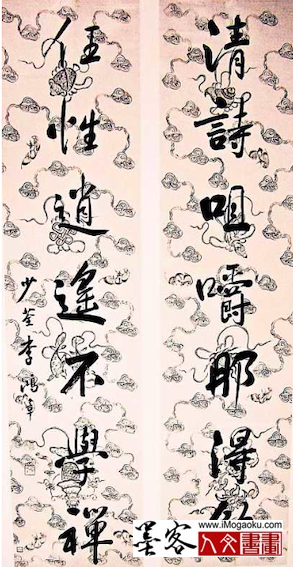 清詩咀嚼那得
任性逍遙不學禪
少荃李鴻章
墨客
www.iMogaoku.com
人文書畫